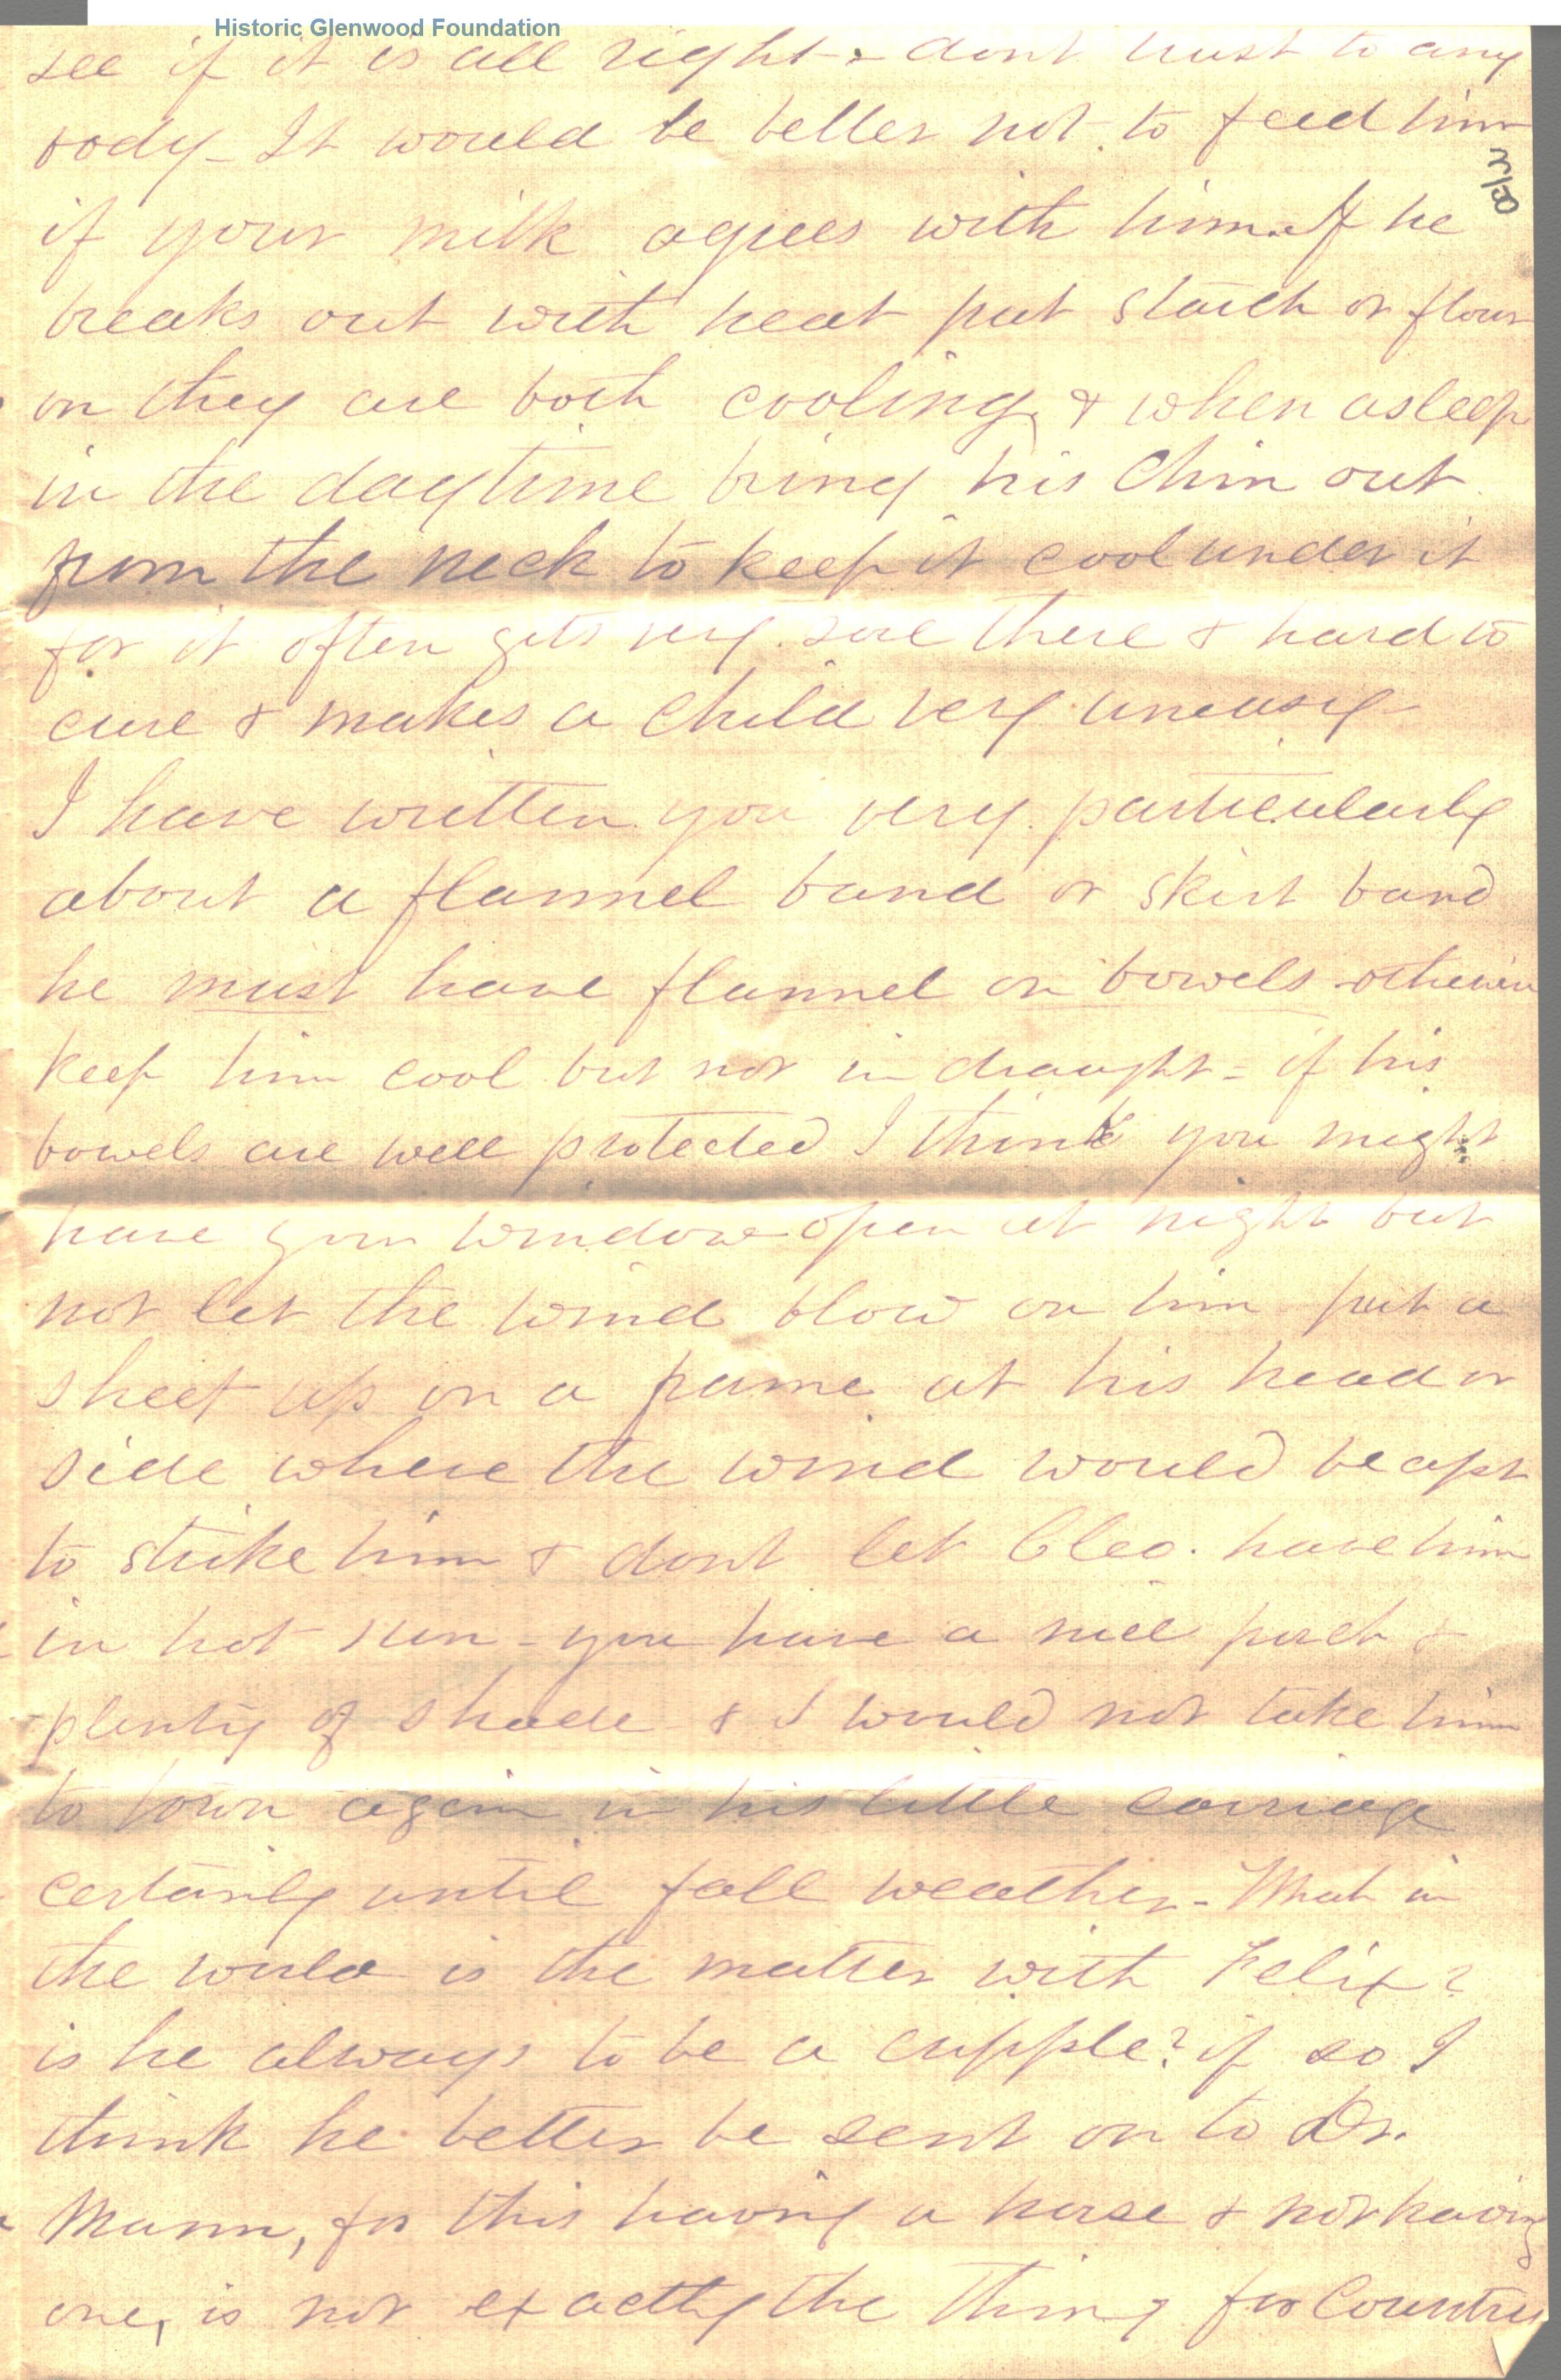 Historic Glenwood Foundation
see if it is all right & dont trust to any
body - It would be better not to feed him
if your milk agrees with him. If he
breaks out with heat put starch or flour
on they are both cooling, & when asleep
in the daytime bring his Chin out
from the neck to keep it cool under it
for it often gets very sore there & hard to
cure & makes a child very uneasy
I have written you very particularly
about a flannel band or skirt band
he must have flannel on bowels - otherwise
keep him cool but not in draught = if his
bowels are well protected I think you might
have your window open at night but
not let the wind blow on him put a
sheet up on a frame at his head or
side where the wind would be apt
to strike him & dont let Cleo. have him
in hot sun - you have a nice porch &
plenty of shade & I would not take him
to town again in his little carriage
certainly until fall weather - What in
the world is the matter with Felix?
is he always to be a cripple? if so I
think he better be sent on to Dr.
Mann, for this having a horse & not having
one, is not exactly the thing for Country